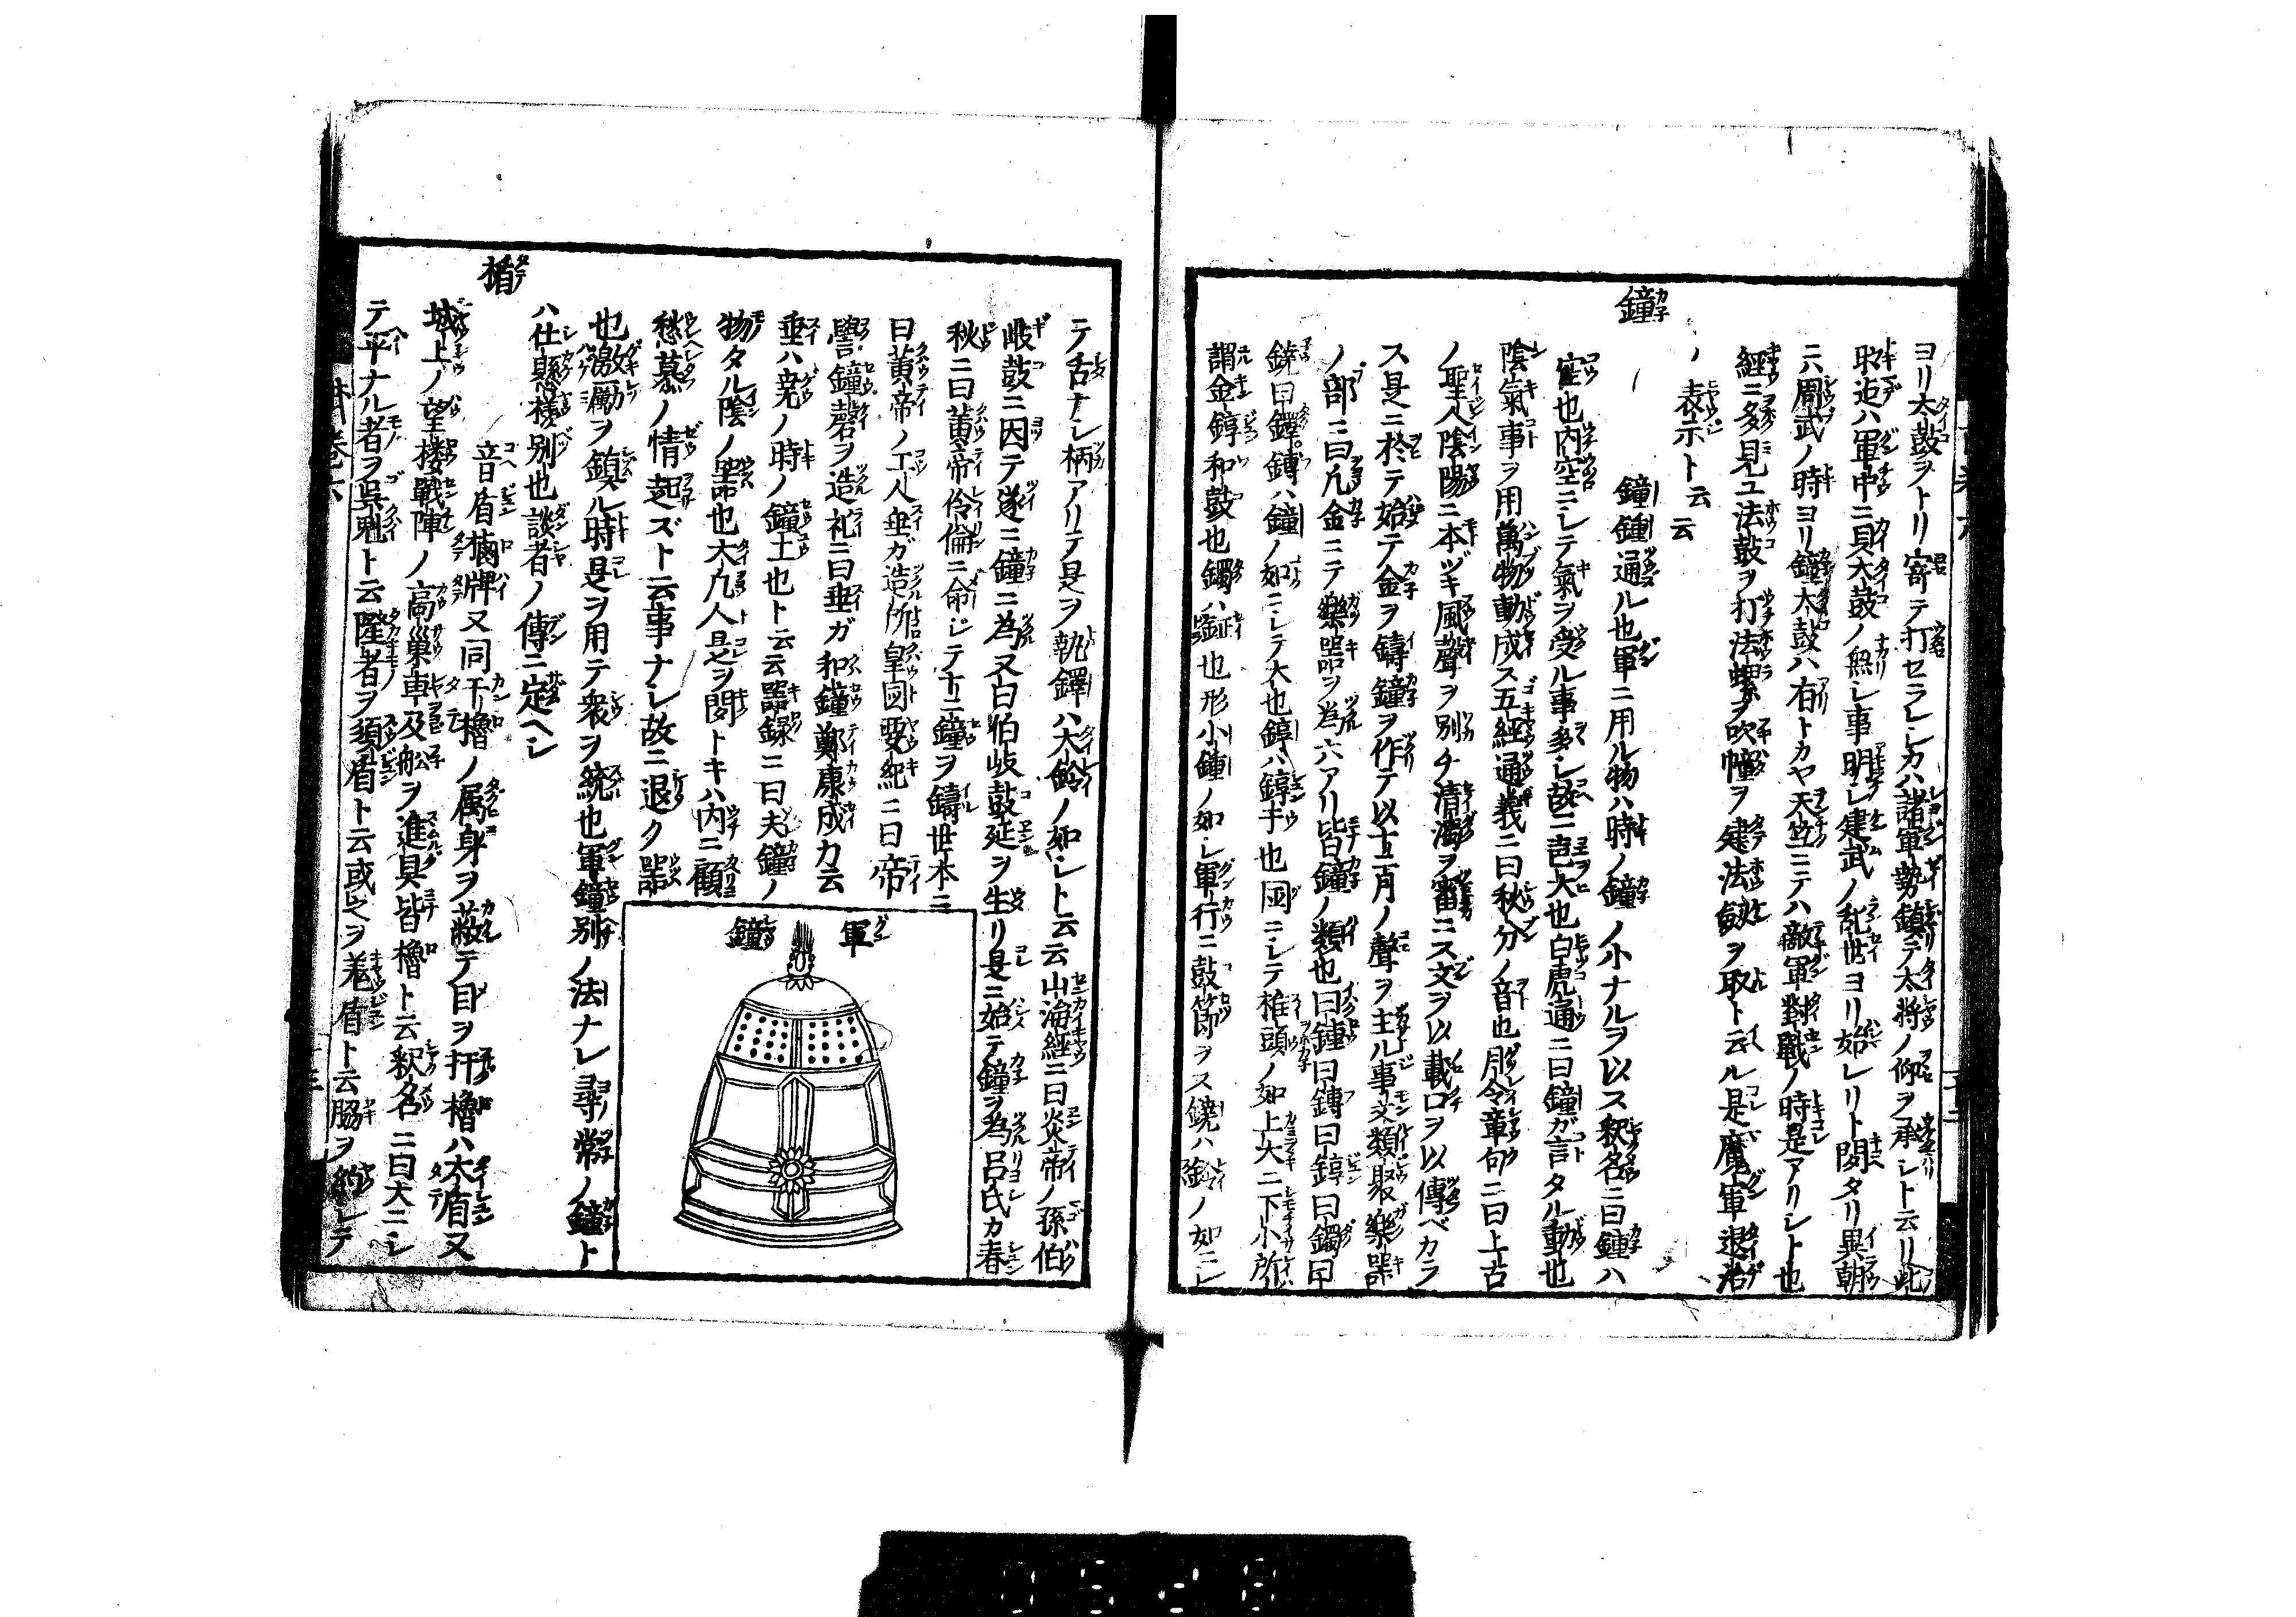 ヨリ太鼓ヲトリ寄テ打セラレシカハ諸軍勢鎮テ太将ノ仰ヲ承シト云リ此
迄ハ軍中ニ貝太鼓ノ無レ事明シ建武ノ乱世ヨリ始レリト聞タリ異朝
ニハ周武ノ時ヨリ鐘太鼓ハ有トカヤ天竺ニテハ敵軍對戰ノ時是アリシト也
經ニ多見ユ法鼓ヲ打法螺ヲ吹幢ヲ建法劔ヲ取ト云ル是魔軍退治
ノ表示ト云云
鐘
鐘鍾通ル也軍ニ用ル物ハ時ノ鐘ノ小ナルヲ以ス釈名ニ曰鍾ハ
空也内空ニシテ氣ヲ受ル事多シ故ニ声大也白虎通ニ曰鐘が言タル動也
陰氣事ヲ用萬物動成ス五經通義ニ曰秋分ノ音也月令章句ニ曰上古
ノ聖人陰陽ニ本ヅキ風聲ヲ別チ清濁ヲ審ニス文ヲ以載口ヲ以傳ベカラ
ス是ニ於テ始テ金ヲ鋳鐘ヲ作テ以十二月ノ聲ヲ主ル事文類聚樂器
ノ部ニ曰凡金ニテ樂器ヲ為六アリ皆鐘ノ類也曰鍾曰鎛曰錞曰鐲曰
鐃曰鐸鎛ハ鐘ノ如ニシテ大也錞ハ錞于也圓ニシテ椎頭ノ如上大ニ下小所
謂金錞和鼓也鐲ハ鉦也形小鍾ノ如シ軍行ニ鼓節ヲス鐃ハ鈴ノ如ニシ
テ舌ナシ柄アリテ是ヲ執鐸ハ大鈴ノ如シト云云山海経ニ曰炎帝ノ孫伯
岐鼓ニ因テ遂ニ鐘ニ為又白伯岐鼓延ヲ生リ是ニ始テ鐘ヲ為呂氏カ春
秋ニ曰黄帝伶倫ニ命シテ十二鐘ヲ鋳世本ニ
曰黄帝ノ工人垂ガ造所皇図要紀ニ曰帝
嚳鐘磬ヲ造礼ニ曰垂ガ和鐘鄭康成カ云
垂ハ尭ノ時ノ鐘工也ト云云器録ニ曰夫鐘ノ
物タル陰ノ器也大凡人是ヲ聞トキハ内ニ顧
愁慕ノ情起ズト云事ナシ故ニ退ク器
也激厲ヲ鎮ル時是ヲ用テ衆ヲ統也軍鐘別ノ法ナシ尋常ノ鐘ト
ハ仕懸様別也談者ノ傳ニ定ヘシ
軍鐘
楯
音盾樠牌又同干櫓ノ属身ヲ蔽テ目ヲ扞櫓ハ大盾又
城上ノ望楼戰陣ノ高巣車及舩ヲ進具皆櫓ト云釈名ニ曰大ニシ
テ平ナル者ヲ呉魁ト云隆者ヲ須盾ト云或之ヲ羗盾ト云脇ヲ約シテ